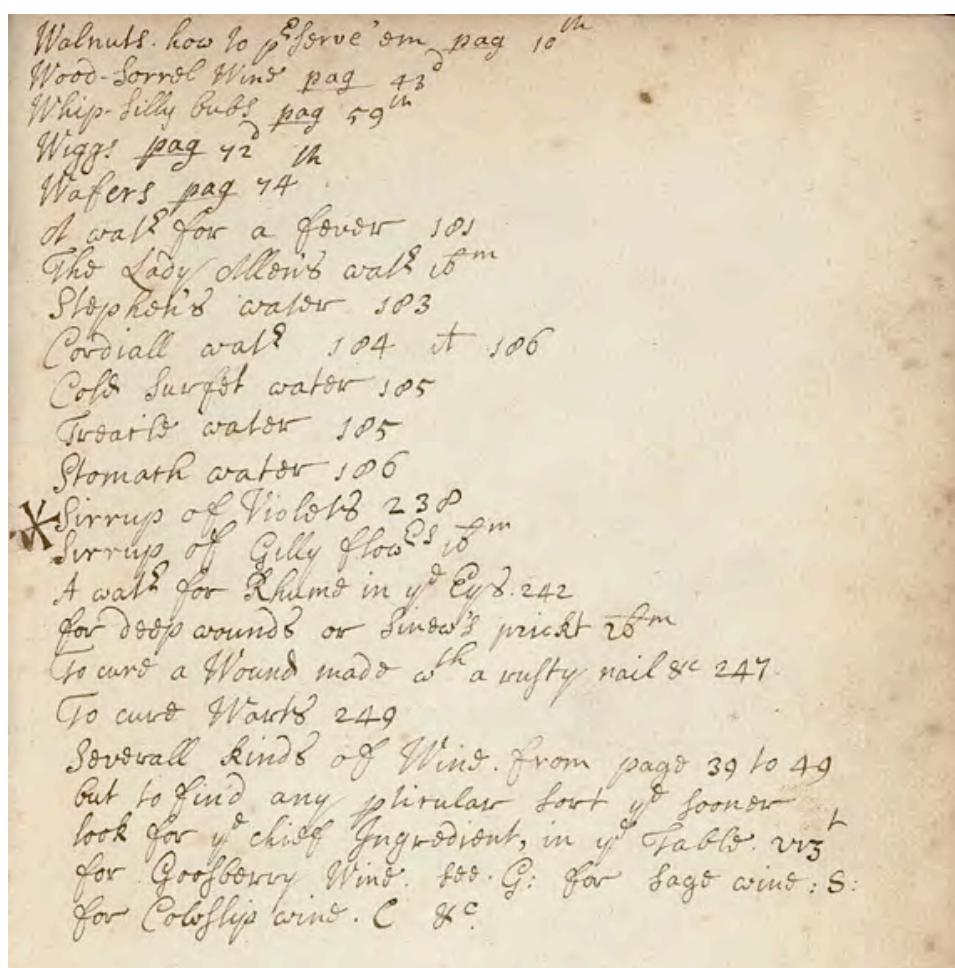 Walnuts. how to p^eserve 'em pag 10^th
Wood-Sorrel Wine pag 43^d
Whip-Silly bubs pag 59^th
Wiggs pag 72^d
Wafers pag 74^th
A wat^r for a fever 181
The Lady Allen's wat^r ib^m
Stephen's water 183
Cordiall wat^r 184 it 186
Cold Surfet water 185
Treacle water 185
Stomach water 186
* Sirrup of Violets 238
Sirrup of Gilly flow^rs ib^m
A wat^r for Rhume in y^e Eys. 242
for deep wounds or Sinew's prickt ib^m
To cure a Wound made w^th a rusty nail &c 247
To cure Warts 249
Severall kinds of Wine. from page 39 to 49
but to find any pticular sort y^e sooner
look for y^e chief Ingredient, in y^e Table. viz^t
for Goosberry Wine. see. G: for Sage wine: S:
for Cowslip wine. C &^c.